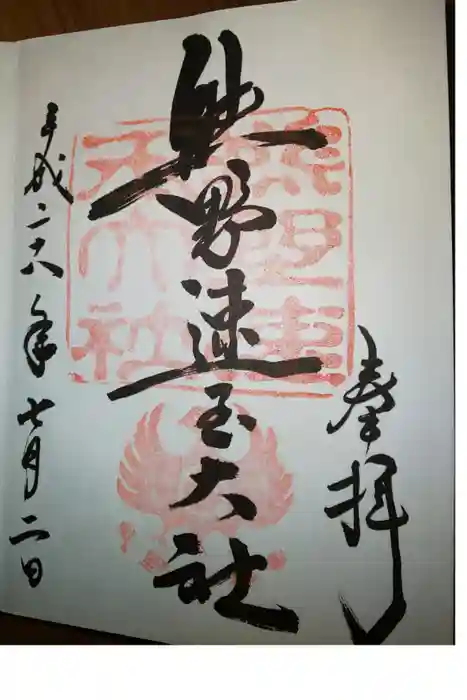 奉拝
熊野速玉大社
平成二十六年七月二日
熊野速玉大社